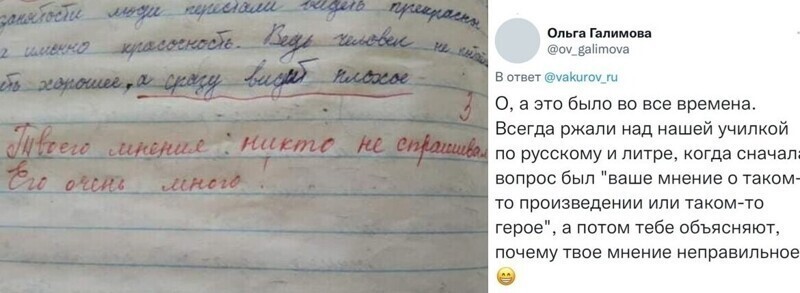 занятости люди перестали видеть прекрасн
а именно красочность. Ведь человек не
ть хорошее, а сразу видит плохое
3
Твоего мнения никто не спрашивал
Его очень много!
Ольга Галимова
@ov_galimova
В ответ @vakurov_ru
О, а это было во все времена.
Всегда ржали над нашей училкой
по русскому и литре, когда сначала
вопрос был "ваше мнение о таком-
то произведении или таком-то
герое", а потом тебе объясняют,
почему твое мнение неправильное
😁